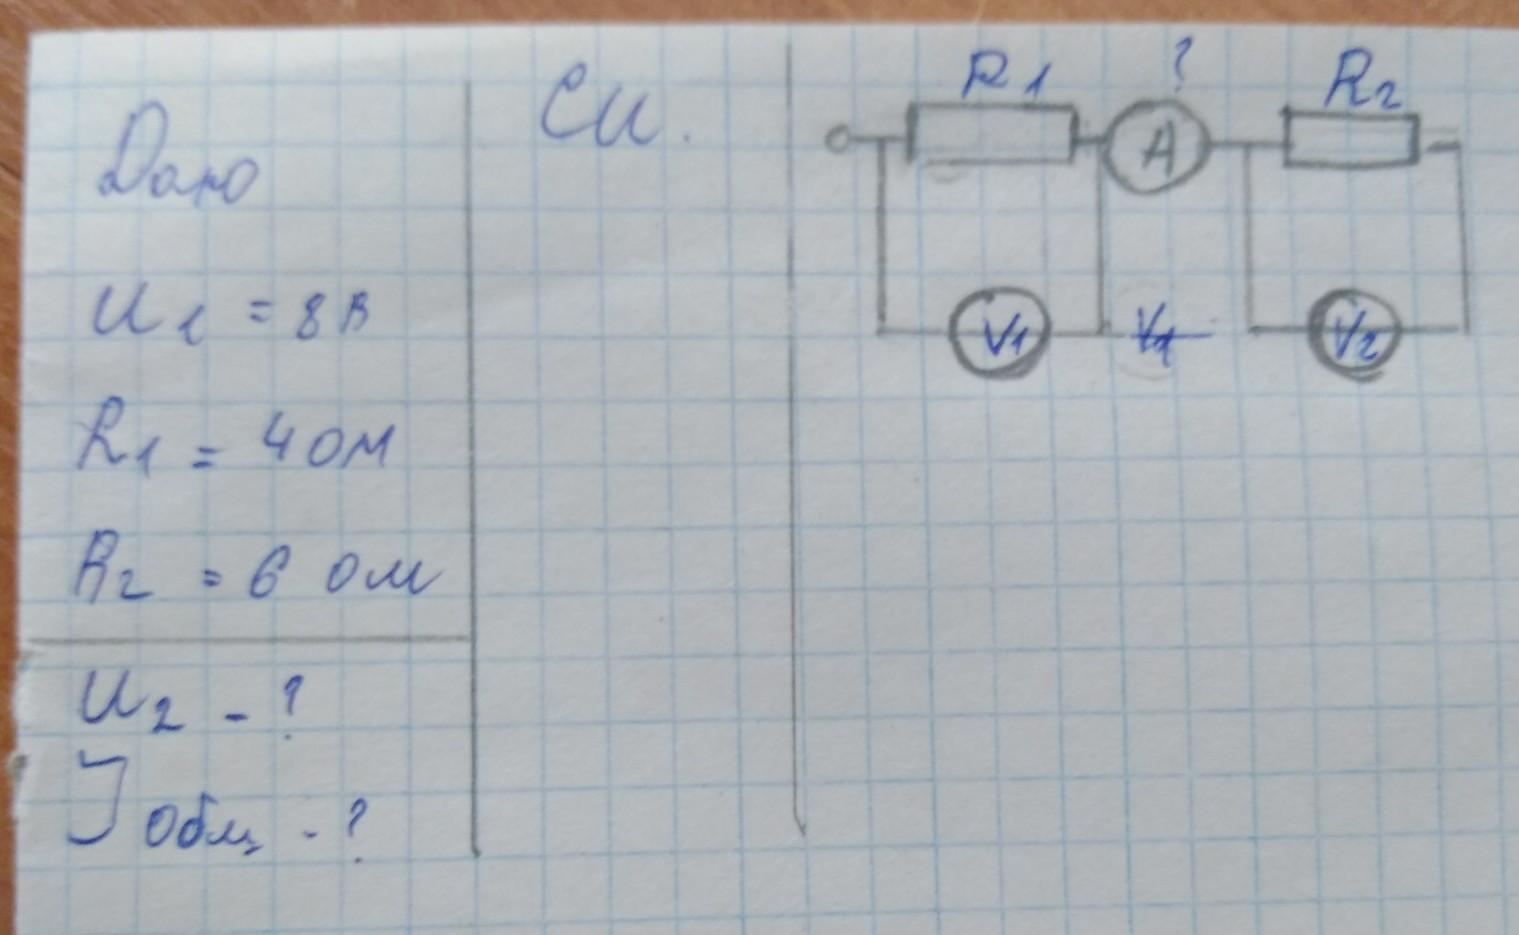 Дано
U1 = 8 В
R1 = 4 Ом
R2 = 6 Ом
U2 - ?
I общ - ?
СИ.
R1 ? R2
A
V1 V1 V2